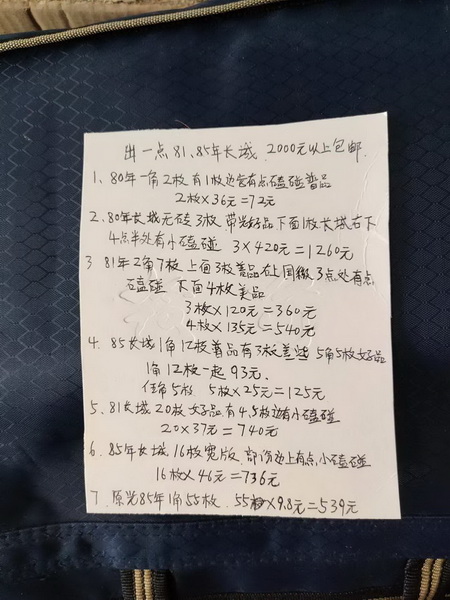 出一点81、85年长城 2000元以上包邮.
1、80年一角2枚有1枚边容有点磕碰普品
2枚×36元=72元
2、80年长城元硬3枚 带光好品下面1枚长城右下
4点半处有小磕碰 3×420元=1260元
3 81年2角7枚上面3枚普品右上国徽3点处有点
磕碰 下面4枚美品
3枚×120元=360元
4枚×135元=540元
4、85长城1角12枚普品有3枚差些 5角5枚好品
1角12枚一起93元.
伍角5枚 5枚×25元=125元
5、81长城20枚好品有4.5枚边有小磕碰
20×37元=740元
6、85年长城16枚宽版 部份边上有点小磕碰
16枚×46元=736元
7、原光85年1角55枚. 55枚×9.8元=539元